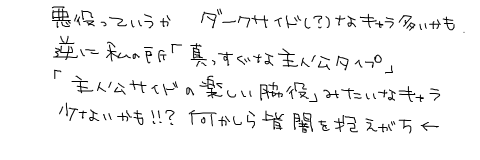 悪役っていうか ダークサイド(?)なキャラ多いかも.
逆に私の所「真っすぐな主人公タイプ」
「主人公サイドの楽しい脇役」みたいなキャラ
少ないかも!!? 何かしら皆闇を抱えがち ←